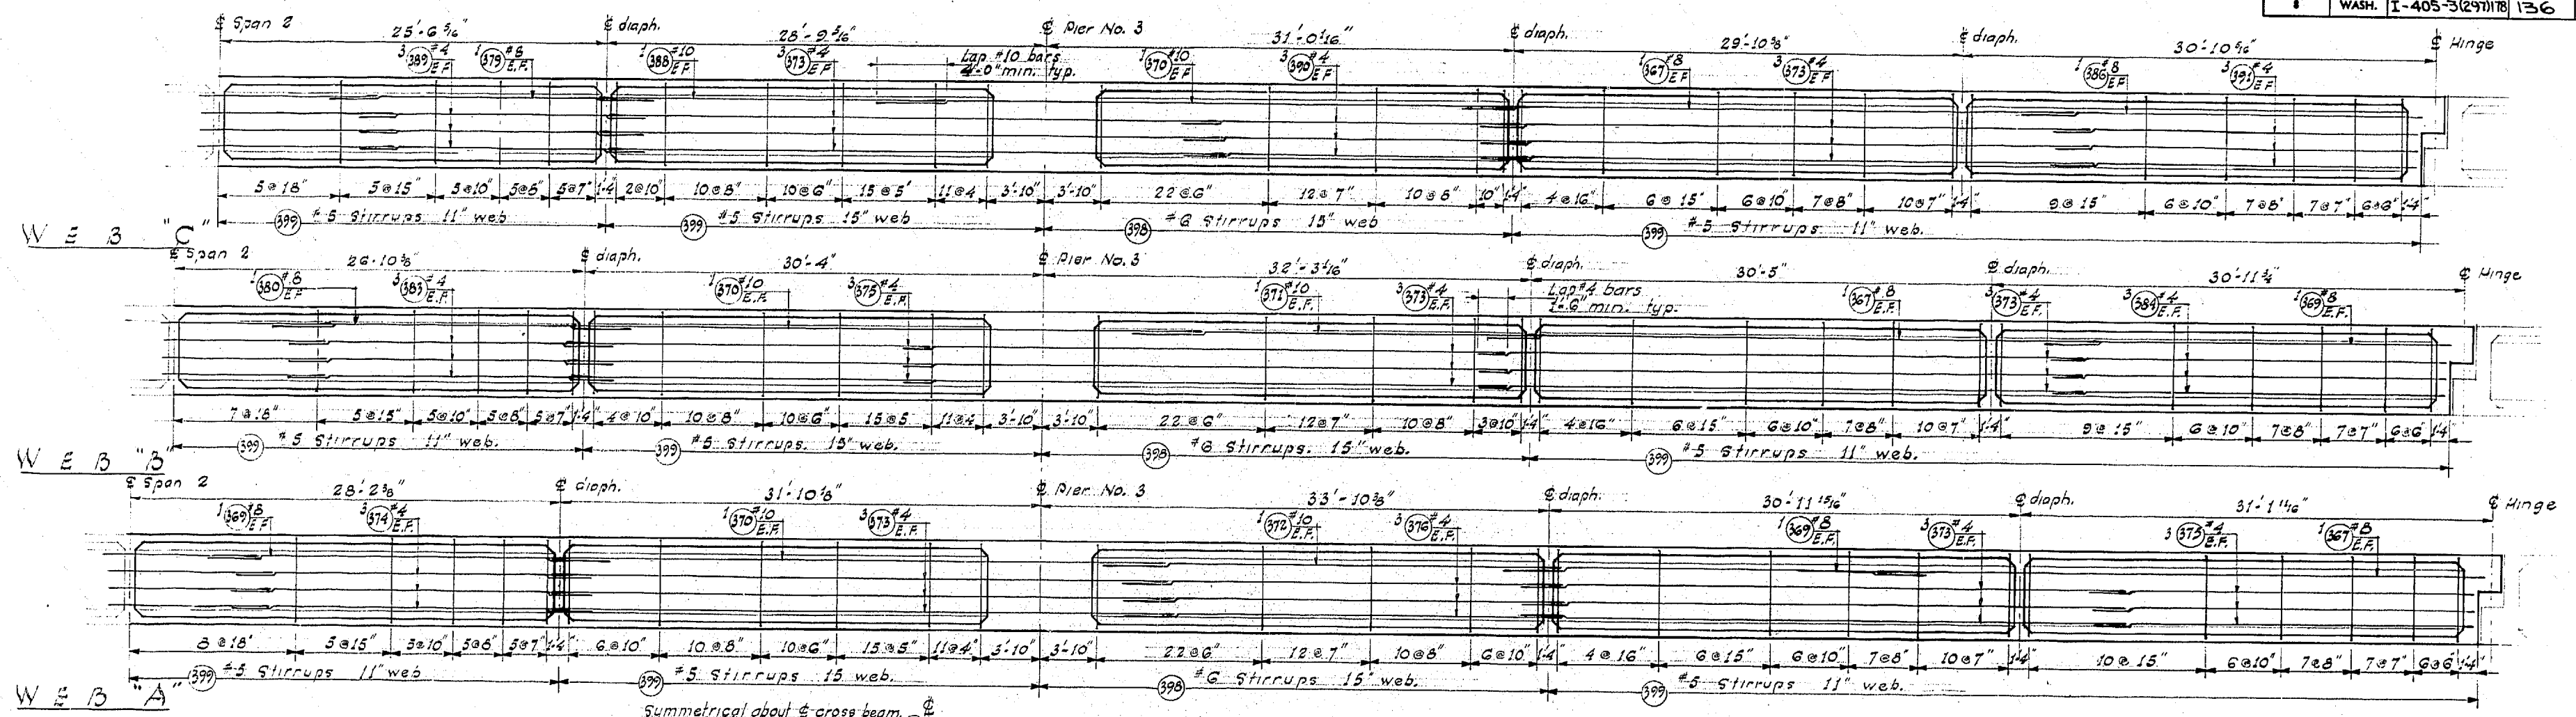 8 WASH. I-405-3(297)178 136
℄ Span 2 25'-6 5/16" ℄ diaph. 28'-9 5/16" ℄ Pier No. 3 31'-0 1/16" ℄ diaph. 29'-10 3/8" ℄ diaph. 30'-10 5/16" ℄ Hinge
3 (389) #4 E.F. 1 (379) #8 E.F. 1 (388) #10 E.F. 3 (373) #4 E.F. Lap #10 bars 1 (370) #10 E.F. 3 (390) #4 E.F. 1 (367) #8 E.F. 3 (373) #4 E.F. 1 (386) #8 E.F. 3 (391) #4 E.F.
4'-0" min. typ.
5@18" 5@15" 5@10" 5@8" 5@7" 1'-4" 2@10" 10@8" 10@6" 15@5" 11@4 3'-10" 3'-10" 22@6" 12@7" 10@8" 10" 1'-4" 4@16" 6@15" 6@10" 7@8" 10@7" 1'-4" 9@15" 6@10" 7@8" 7@7" 6@6" 1'-4"
(399) #5 Stirrups 11" web (399) #5 Stirrups 15" web (398) #6 Stirrups 15" web (399) #5 Stirrups 11" web.
WEB "C"
℄ Span 2 26'-10 3/8" ℄ diaph. 30'-4" ℄ Pier No. 3 32'-3 1/16" ℄ diaph. 30'-5" ℄ diaph. 30'-11 3/4" ℄ Hinge
1 (380) #8 E.F. 3 (383) #4 E.F. 1 (370) #10 E.F. 3 (375) #4 E.F. 1 (371) #10 E.F. 3 (373) #4 E.F. Lap #4 bars 1 (367) #8 E.F. 3 (373) #4 E.F. 3 (384) #4 E.F. 1 (369) #8 E.F.
1'-6" min. typ.
7@18" 5@15" 5@10" 5@8" 5@7" 1'-4" 4@10" 10@8" 10@6" 15@5 11@4 3'-10" 3'-10" 22@6" 12@7" 10@8" 3@10" 1'-4" 4@16" 6@15" 6@10" 7@8" 10@7" 1'-4" 9@15" 6@10" 7@8" 7@7" 6@6 1'-4"
(399) #5 Stirrups 11" web. (399) #5 Stirrups. 15" web. (398) #6 Stirrups. 15" web. (399) #5 Stirrups 11" web.
WEB "B"
℄ Span 2 28'-2 3/8" ℄ diaph. 31'-10 1/8" ℄ Pier No. 3 33'-10 3/8" ℄ diaph. 30'-11 15/16" ℄ diaph. 31'-1 11/16" ℄ Hinge
1 (369) #8 E.F. 3 (374) #4 E.F. 1 (370) #10 E.F. 3 (373) #4 E.F. 1 (372) #10 E.F. 3 (376) #4 E.F. 1 (369) #8 E.F. 3 (373) #4 E.F. 3 (375) #4 E.F. 1 (367) #8 E.F.
8@18" 5@15" 5@10" 5@8" 5@7" 1'-4" 6@10" 10@8" 10@6" 15@5" 11@4" 3'-10" 3'-10" 22@6" 12@7" 10@8" 6@10" 1'-4" 4@16" 6@15" 6@10" 7@8" 10@7" 1'-4" 10@15" 6@10" 7@8" 7@7" 6@6 1'-4"
(399) #5 Stirrups 11" web (399) #5 Stirrups 15 web. (398) #6 Stirrups 15" web. (399) #5 Stirrups 11" web.
WEB "A"
Symmetrical about ℄ cross beam. ℄